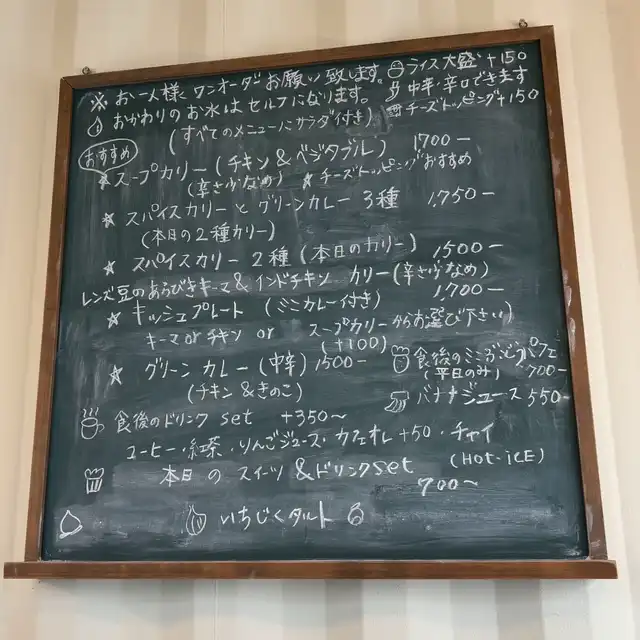 ※ お一人様、ワンオーダーお願い致します。
おかわりのお水は セルフになります。
(すべてのメニューにサラダ付き)
ライス大盛 +150
中辛・辛口できます
チーズトッピング +150
おすすめ
★ スープカリー (チキン&ベジタブル) 1700-
(辛さ少なめ) ★チーズトッピングおすすめ
★ スパイスカリーと グリーンカレー 3種 1,750-
(本日の2種カリー)
★ スパイスカリー 2種 (本日のカリー) 1500-
レンズ豆のあらびきキーマ&インドチキン カリー(辛さ少なめ)
★ キッシュプレート (ミニカレー付き) 1,700-
キーマ or チキン or スープカリーからお選び下さい)
(+100)
★ グリーンカレー (中辛) 1500-
(チキン&きのこ)
食後のミニ パフェ
(平日のみ) 700-
バナナジュース 550-
食後のドリンク set +350〜
コーヒー・紅茶・りんごジュース・カフェオレ+50・チャイ
(HOT・iCE)
本日の スイーツ &ドリンクset
700〜
いちじくタルト